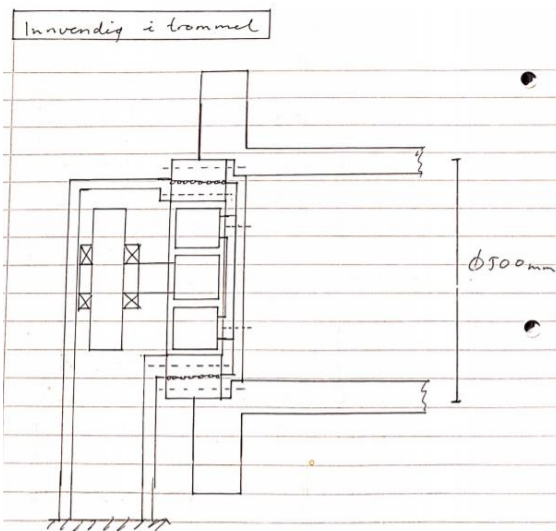 Innvendig i trommel
ϕ500mm